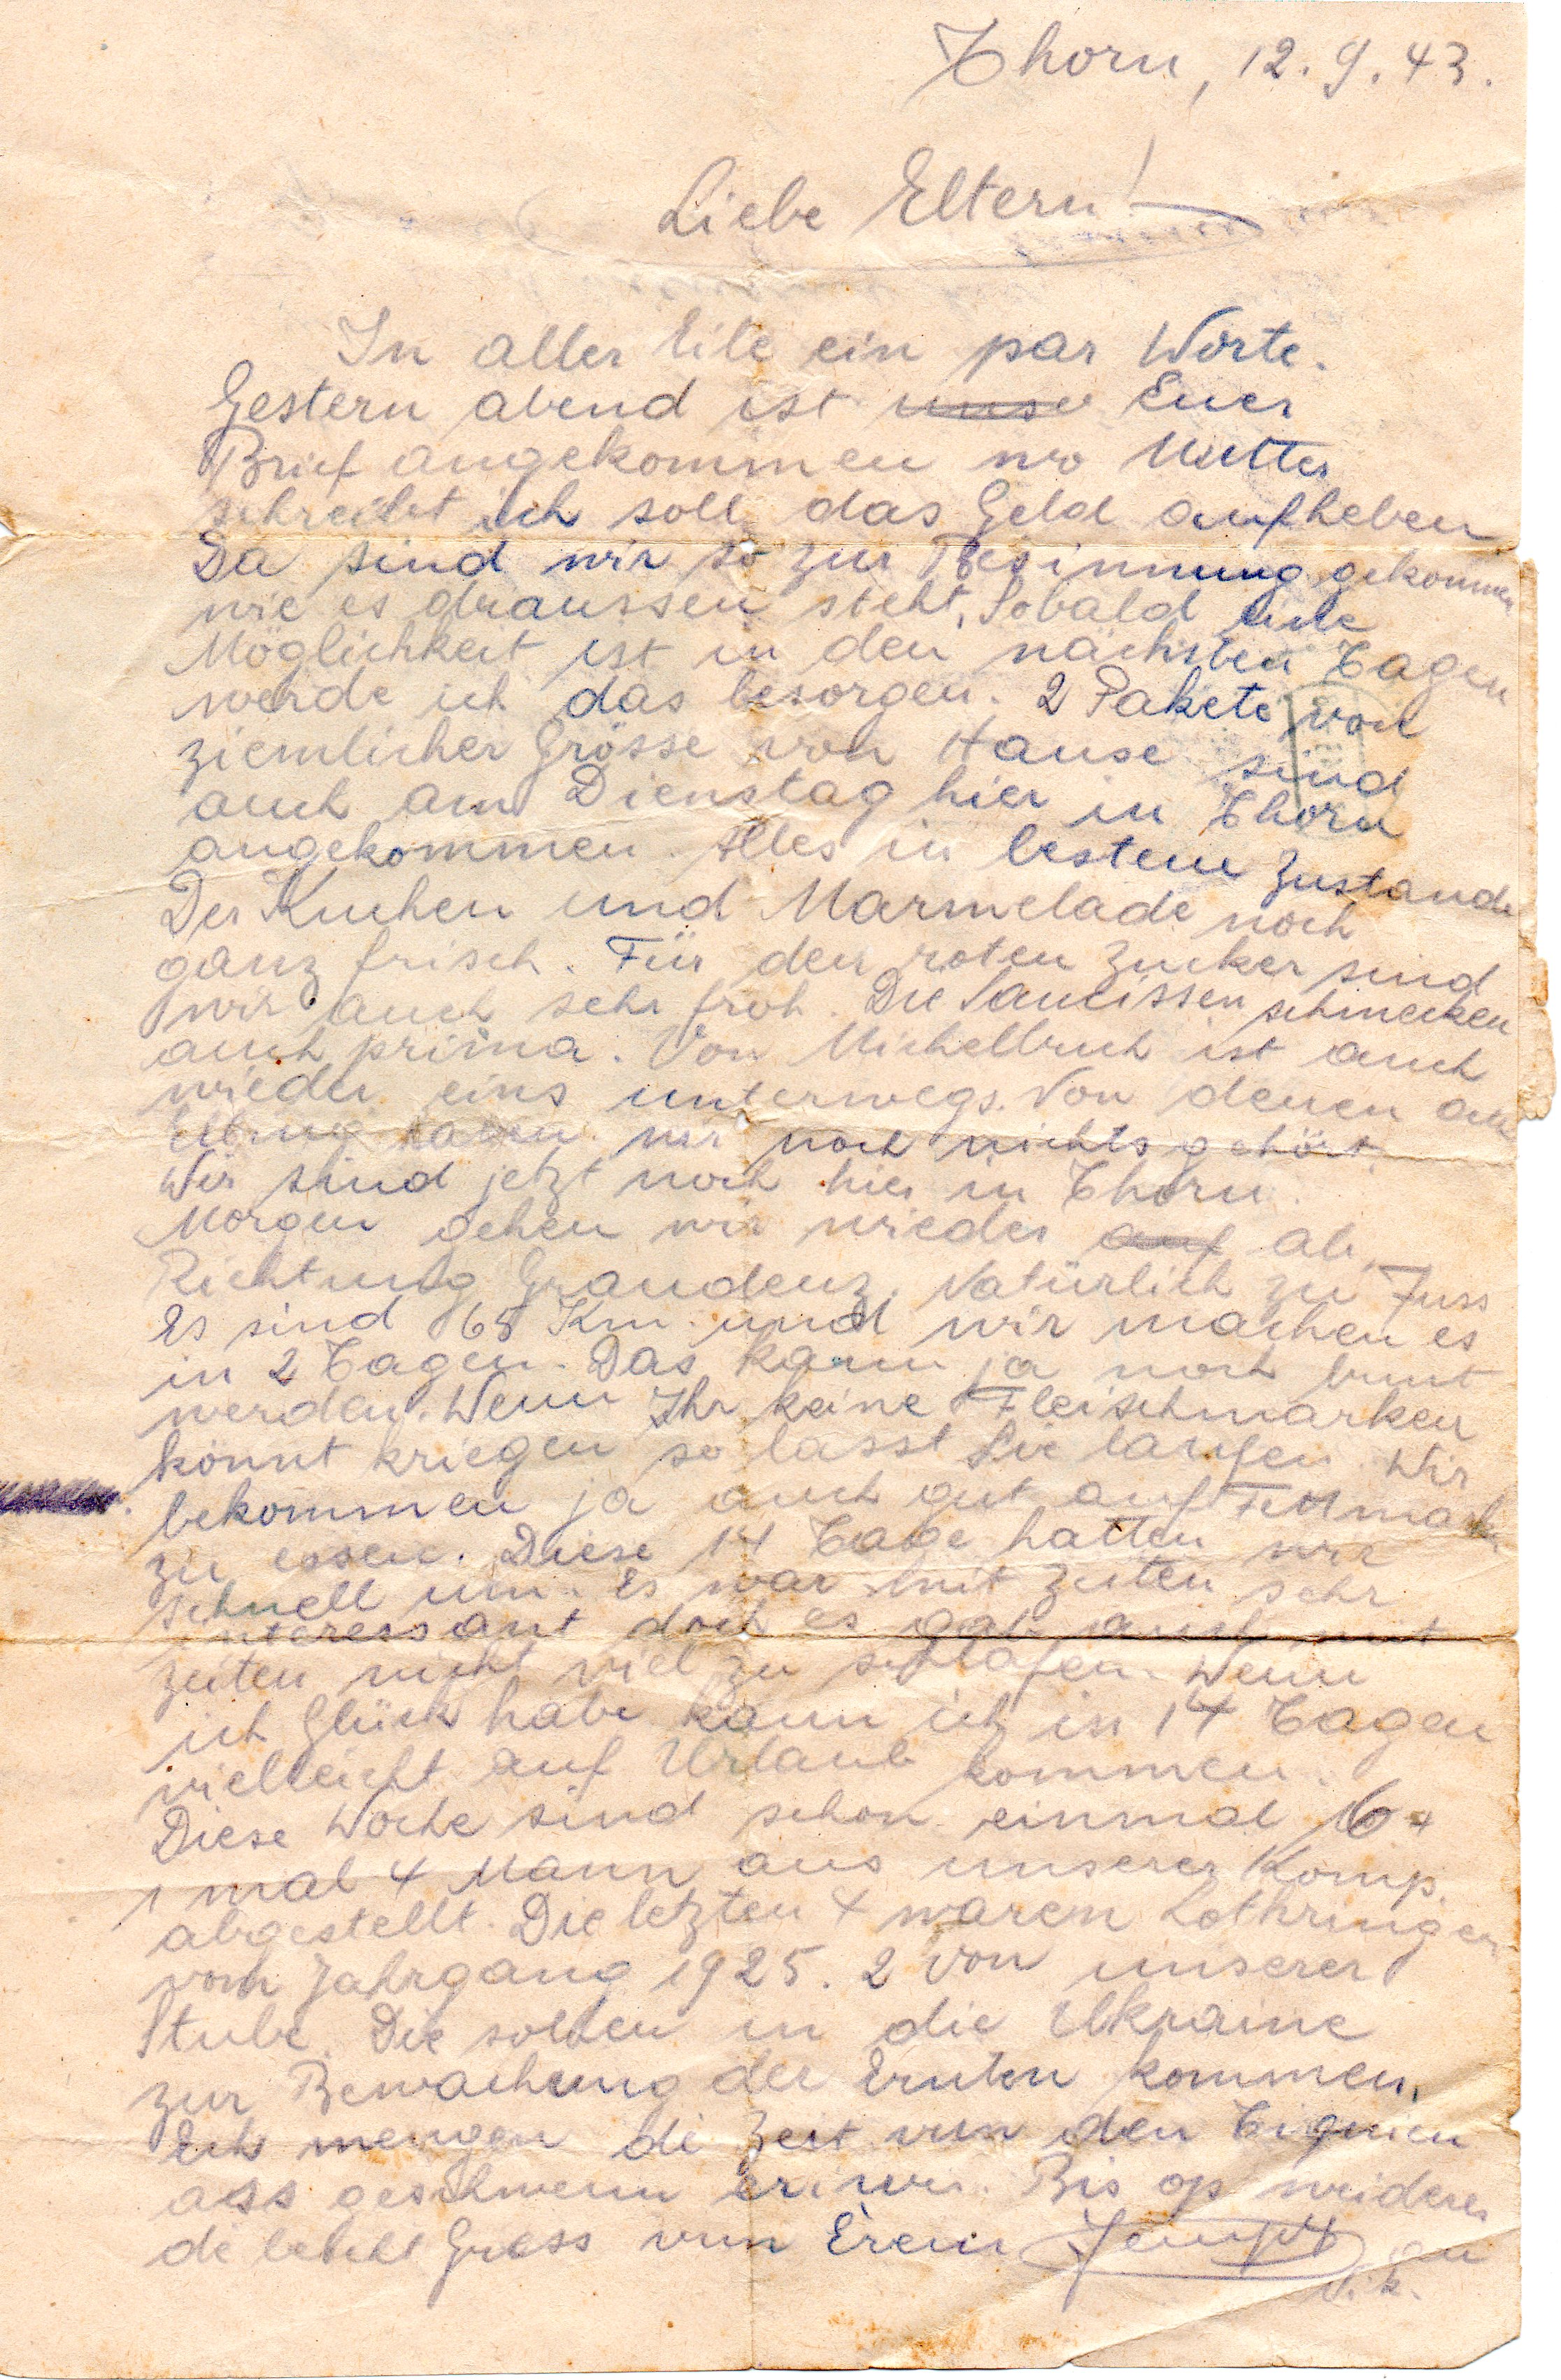 Thorn, 12.9.43.
Liebe Eltern!
In aller Eile ein par Worte.
Gestern abend ist unser Euer
Brief angekommen wo Mutter
schreibt ich soll das Geld aufheben
Da sind wir so zur Besinnung gekommen
wie es draussen steht. Sobald eine
Möglichkeit ist in den nächsten Tagen
werde ich das besorgen. 2 Pakete von
ziemlicher Grösse von Hause sind
auch am Dienstag hier in Thorn
angekommen. Alles in bestem Zustande
Der Kuchen und Marmelade noch
ganz frisch. Für den roten Zucker sind
wir auch sehr froh. Die Saucissen schmecken
auch prima. Von Michelbruch ist auch
wieder eins unterwegs. Von denen aus
Elbing haben wir noch nichts gehört.
Wir sind jetzt noch hier in Thorn.
Morgen gehen wir wieder auf ab,
Richtung Graudenz. Natürlich zu Fuss
Es sind 65 Km. und wir machen es
in 2 Tagen. Das kann ja noch bunt
werden. Wenn Ihr keine Fleischmarken
könnt kriegen so lasst Sie laufen. Wir
bekommen ja auch gut auf
zu essen. Diese 14 Tage hatten wir
schnell um. Es war mit Zeiten sehr
interessant doch es gab auch mit
zeiten nicht viel zu schlafen. Wenn
ich Glück habe kann ich in 14 Tagen
vielleicht auf Urlaub kommen.
Diese Woche sind schon einmal 16 +
1 mal 4 Mann aus unserer Komp.
abgestellt. Die letzten 4 waren Lothringer
vom Jahrgang 1925. 2 von unserer
Stube. Die sollen in die Ukraine
zur Bewachung der Ernten kommen.
Ech mengen di Zeit vun den
ass geschwenn eriwer. Bis op weideres
di Gress vun Erem Jempy an